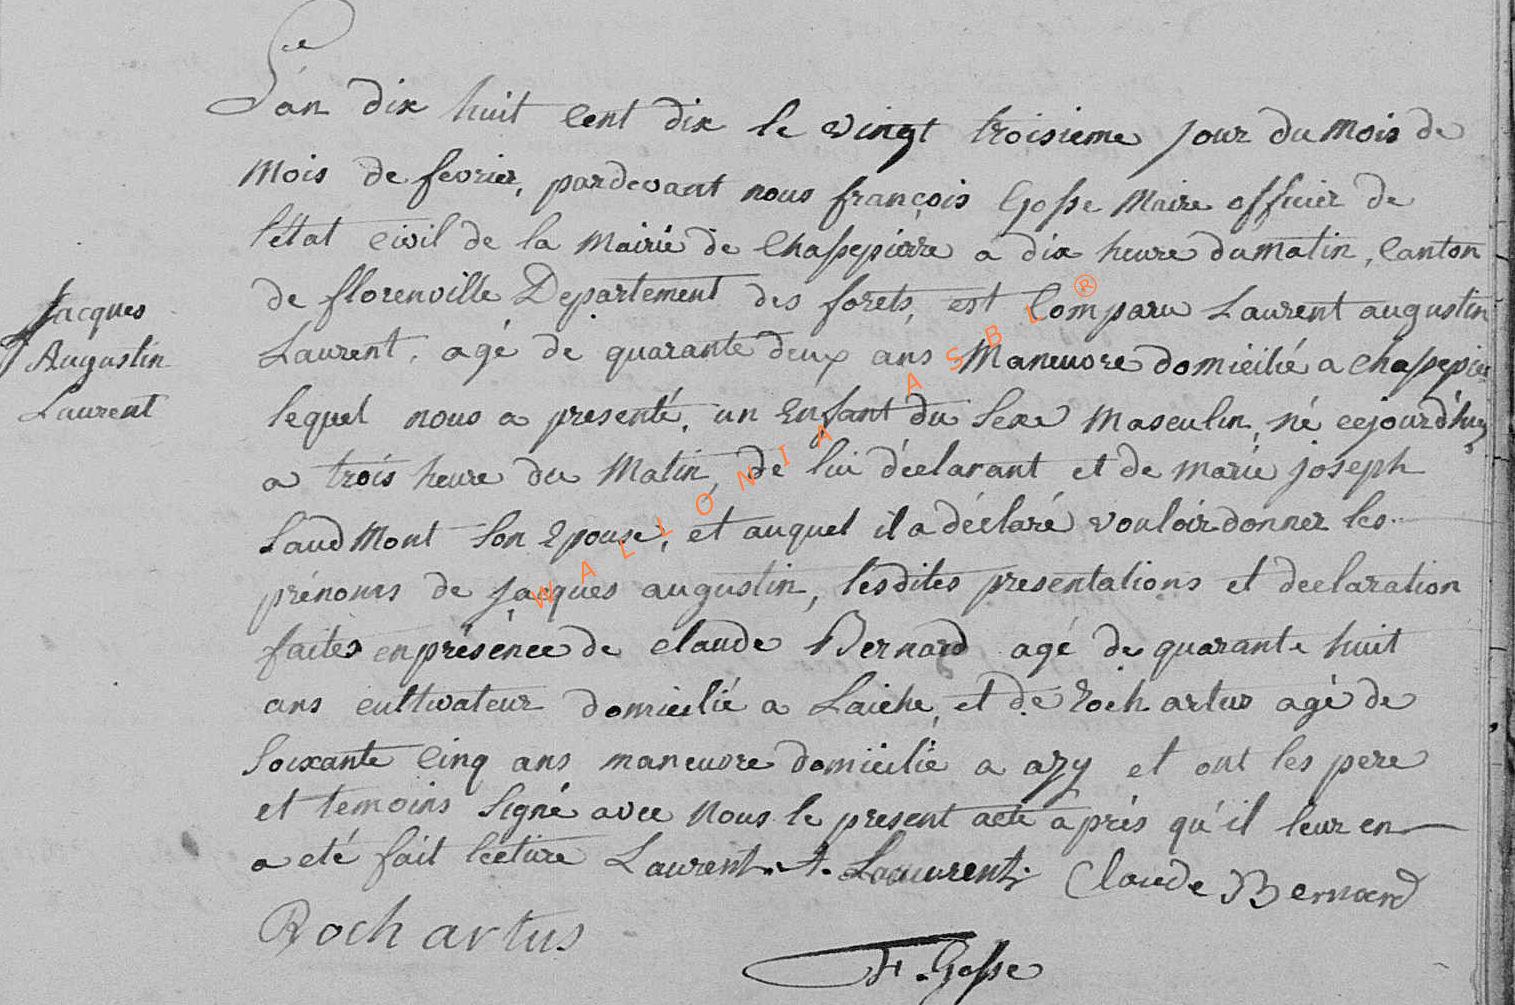 L'an dix huit cent dix le vingt troisieme jour du mois de
mois de fevrier, pardevant nous françois Gosse Maire officier de
l'état civil de la Mairie de Chassepierre a dix heure du matin, Canton
de florenville Departement des forets, est Comparu Laurent augustin
Laurent, agé de quarante deux ans Maneuvre domicilié a Chassepier
lequel nous a presenté, un Enfant du Sexe Masculin, né cejourd'huy
a trois heure du Matin, de lui déclarant et de marie joseph
Laudmont Son Epouse, et auquel il a déclaré vouloir donner les
prénoms de jacques augustin, lesdites presentations et declaration
faites en présénce de claude Bernard agé de quarante huit
ans cultivateur domicilié a Laiche, et de Roch artus agé de
Soixante Cinq ans maneuvre domicilié a azy et ont les pere
et temoins Signé avec nous le present acte après qu'il leur en
a eté fait lecture Laurent. A. Lauurent. Claude Bernard
Roch artus
F. Gosse
Jacques
Augustin
Laurent
WALLONIA ASBL ®